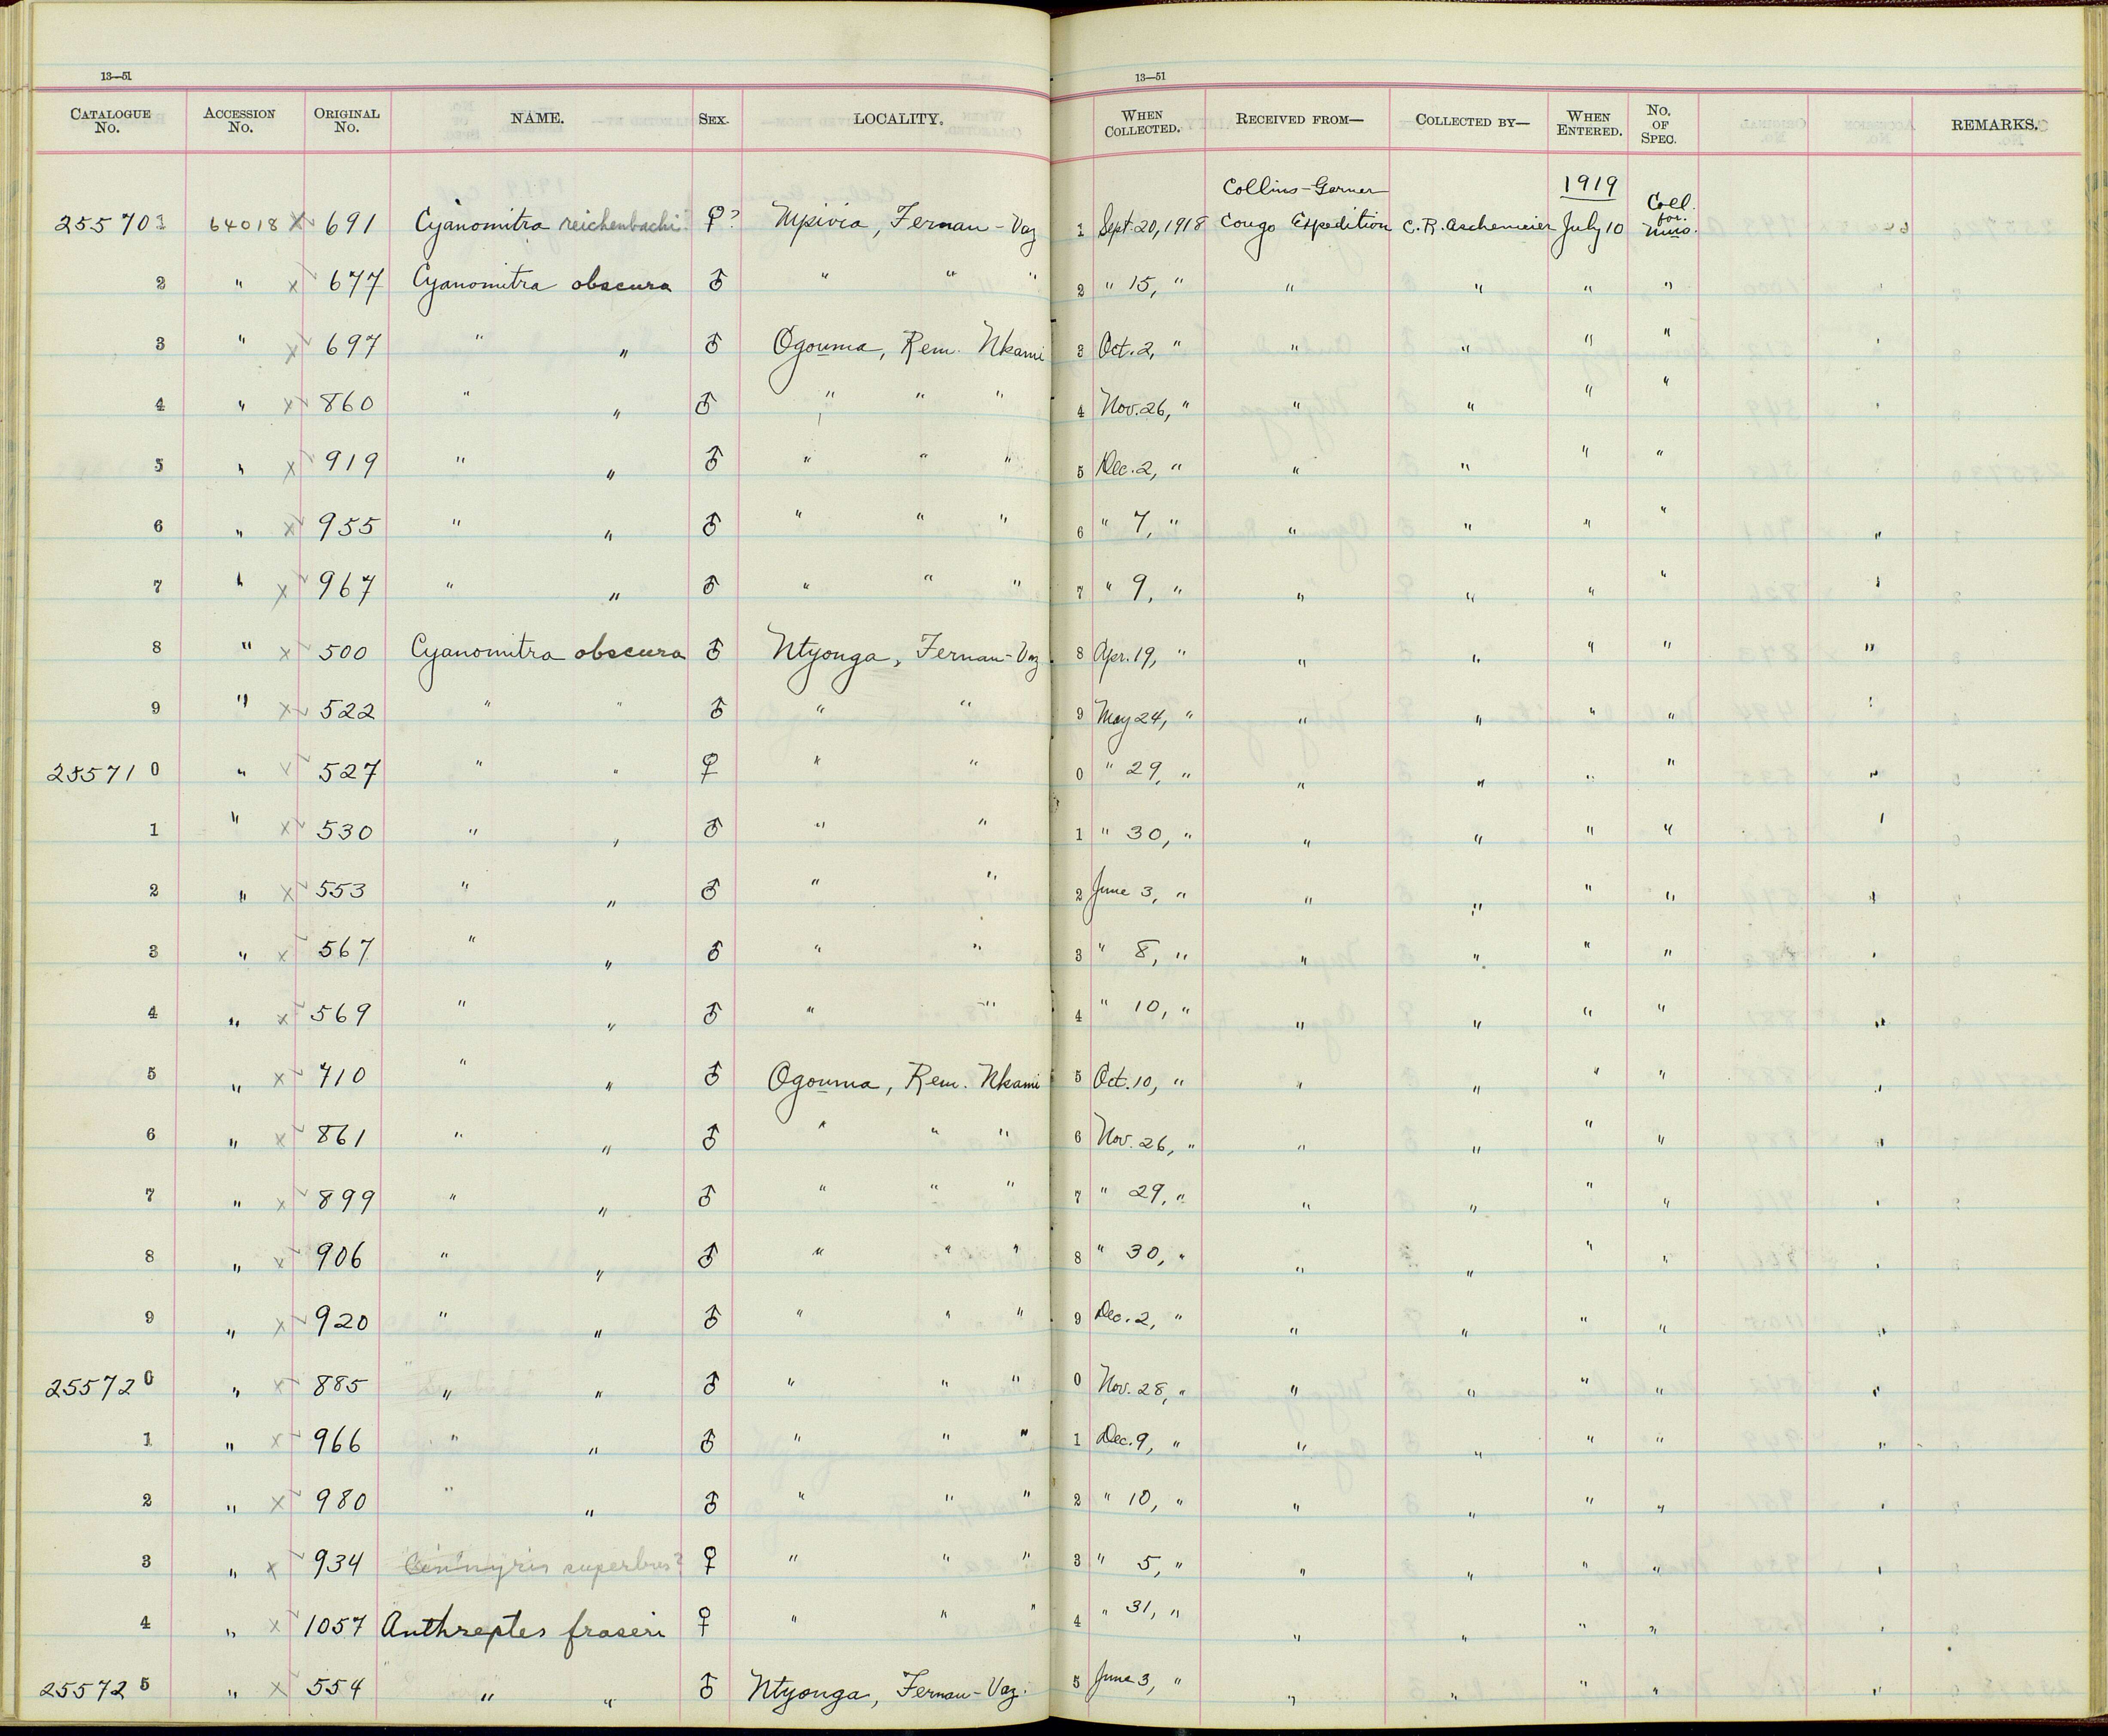 13—51
13—51
CATALOGUE No. ACCESSION No. ORIGINAL No. NAME. SEX. LOCALITY. WHEN COLLECTED. RECEIVED FROM— COLLECTED BY— WHEN ENTERED. No. OF SPEC. REMARKS.
Collins-Garner 1919 Coll. for
255701 64018 X 691 Cyanomitra reichenbachi? ♀? Mpivia, Fernan-Vaz 1 Sept. 20, 1918 Congo Expedition C. R. Aschemeier July 10 Mus.
2 " X 677 Cyanomitra obscura ♂ " " " 2 " 15, " " " " "
3 " X 697 " " ♂ Ogouma, Rem. Nkami 3 Oct. 2, " " " " "
4 " X 860 " " ♂ " " " 4 Nov. 26, " " " " "
5 " X 919 " " ♂ " " " 5 Dec. 2, " " " " "
6 " X 955 " " ♂ " " " 6 " 7, " " " " " "
7 " X 967 " " ♂ " " " 7 " 9, " " " " " "
8 " X 500 Cyanomitra obscura ♂ Ntyonga, Fernan-Vaz 8 Apr. 19, " " " " " "
9 " X 522 " " ♂ " " 9 May 24, " " " " " "
255710 " 527 " " ♀ " " 0 " 29, " " " " " "
1 " X 530 " " ♂ " " 1 " 30, " " " " " "
2 " X 553 " " ♂ " " 2 June 3, " " " " " "
3 " X 567 " " ♂ " " 3 " 8, " " " " " "
4 " X 569 " " ♂ " " 4 " 10, " " " " " "
5 " X 710 " " ♂ Ogouma, Rem. Nkami 5 Oct. 10, " " " " " "
6 " X 861 " " ♂ " " " 6 Nov. 26, " " " " " "
7 " X 899 " " ♂ " " " 7 " 29, " " " " " "
8 " X 906 " " ♂ " " " 8 " 30, " " " " " "
9 " X 920 " " ♂ " " " 9 Dec. 2, " " " " " "
255720 " X 885 " " ♂ " " " 0 Nov. 28, " " " " " "
1 " X 966 " " ♂ " " " 1 Dec. 9, " " " " " "
2 " X 980 " " ♂ " " " 2 " 10, " " " " " "
3 " X 934 Cinnyris superbus? ♀ " " " 3 " 5, " " " " " "
4 " X 1057 Anthreptes fraseri ♀ " " " 4 " 31, " " " " " "
255725 " X 554 " " ♂ Ntyonga, Fernan-Vaz. 5 June 3, " " " " " "